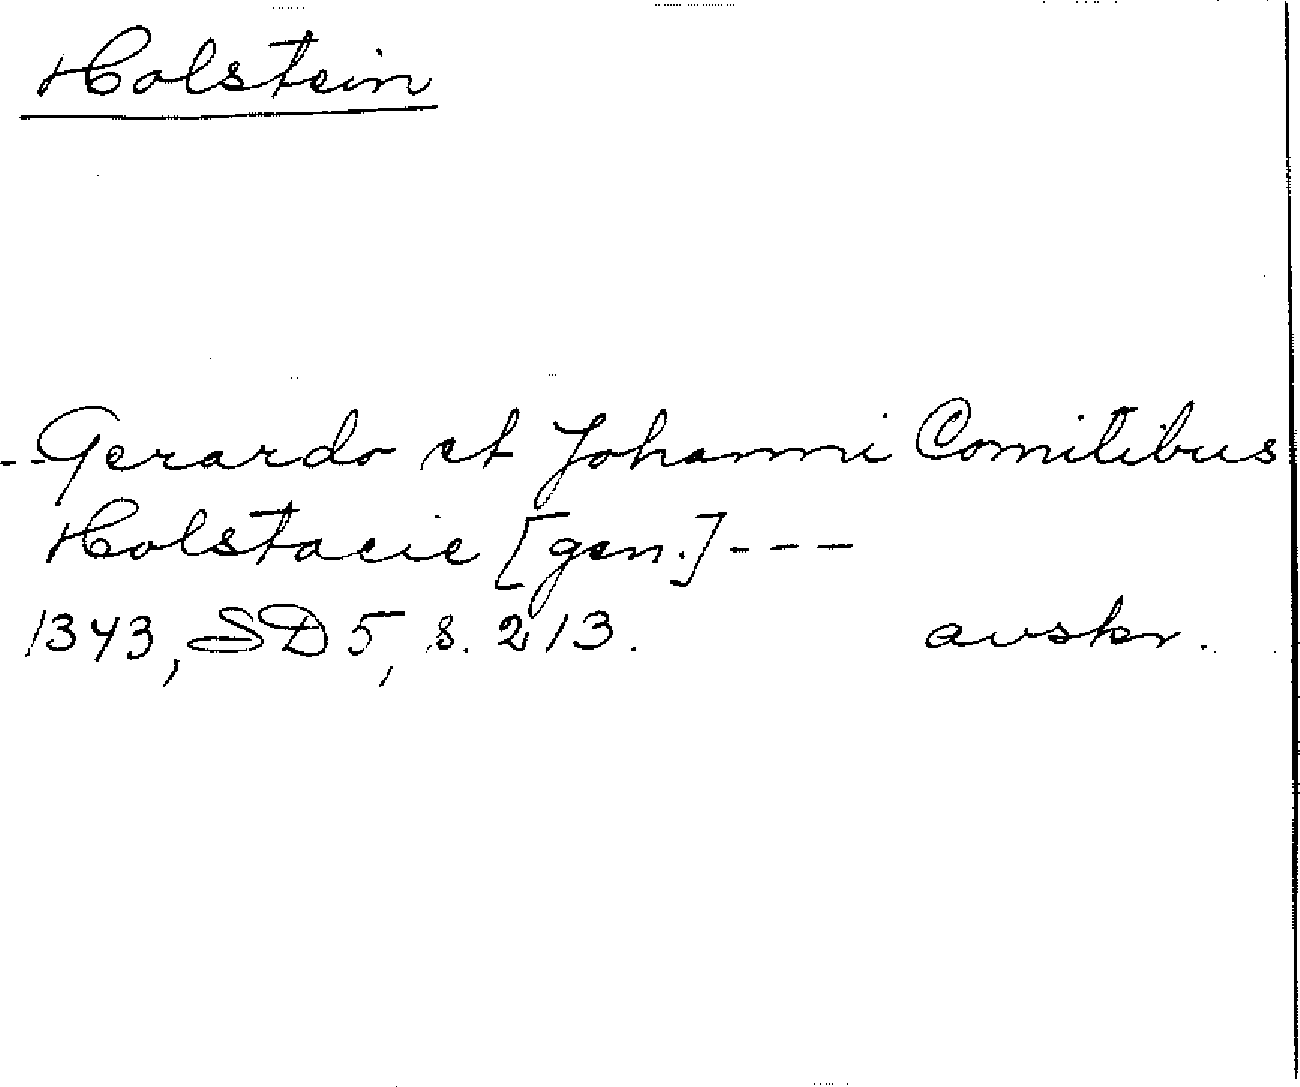 Holstein
--Gerardo et Johanni Comitibus
Holstacie [gen.]---
1343, SD 5, s. 213. avskr.